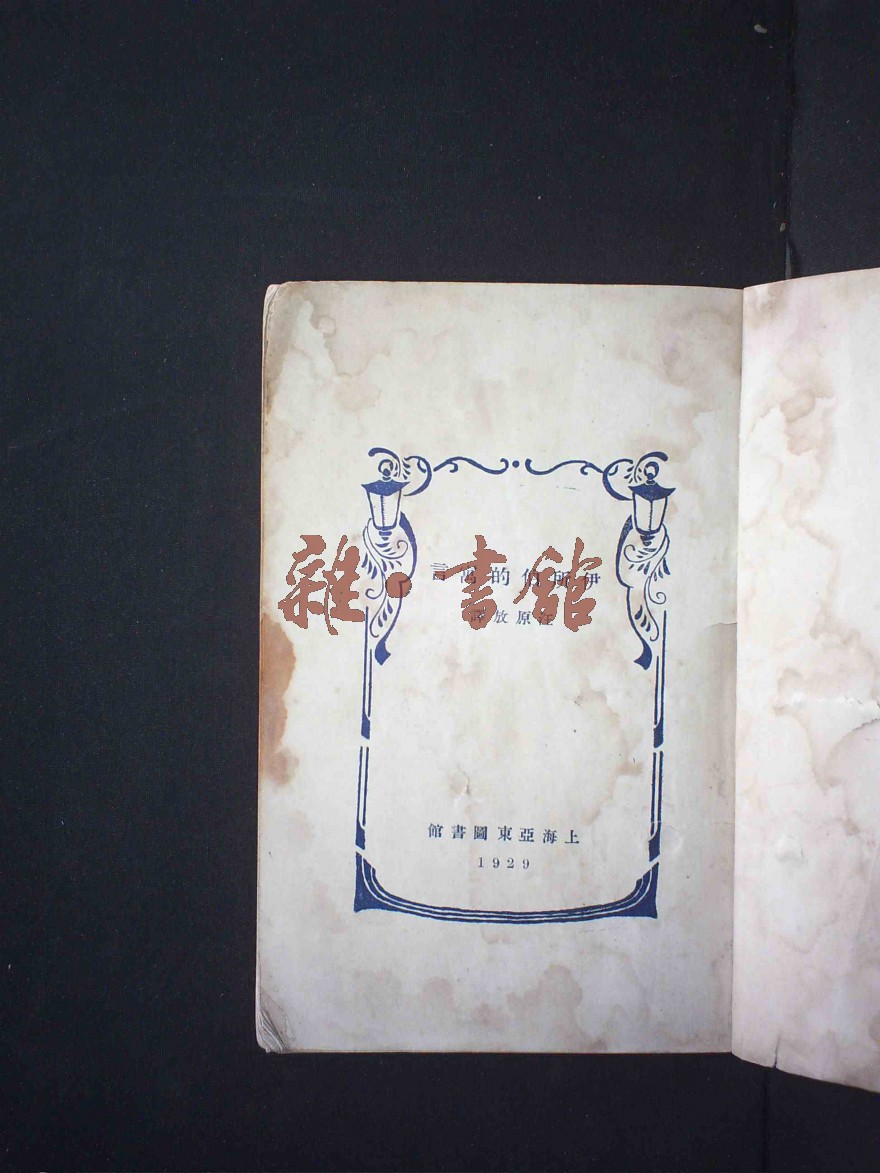 伊所伯的寓言
雜·書館
汪原放譯
上海亞東圖書館
1929